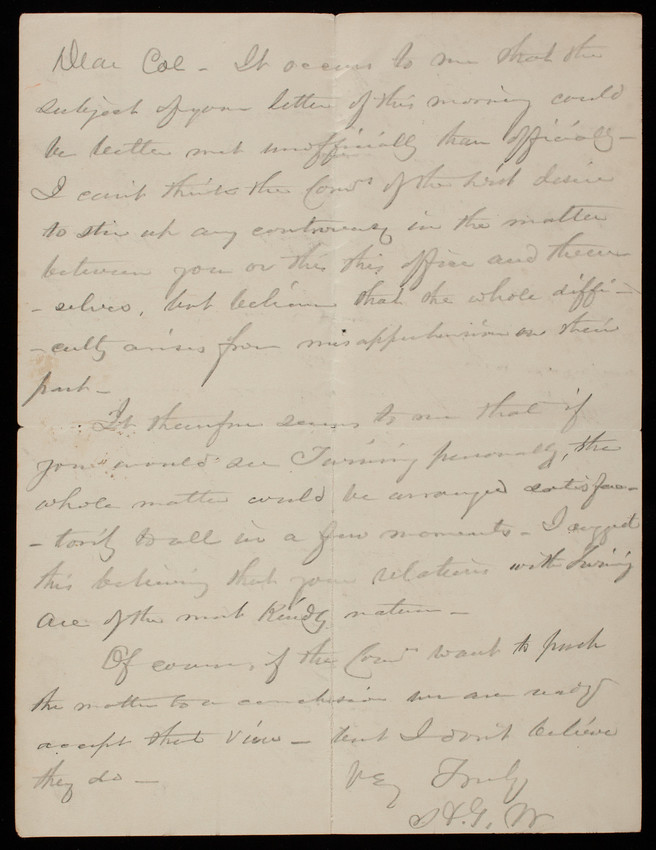 Dear Col - It occurs to me that the
subject of your letter of this morning could
be better met unofficially than officially -
I can't think the Comrs of the Dist desire
to stir up any controversy in the matter
between you or this this office and them
- selves, but believe that the whole diffi -
- culty arises from misapprehension on their
part -
It therefore seems to me that if
you "would" see Twining personally, the
whole matter could be arranged satisfac -
- torily to all in a few moments - I suggest
this believing that your relations with Twining
are of the most kindly nature -
Of course, if the Comrs want to push
the matter to a conclusion we are ready
accept that view - but I don't believe
they do -
Very Truly
G. W